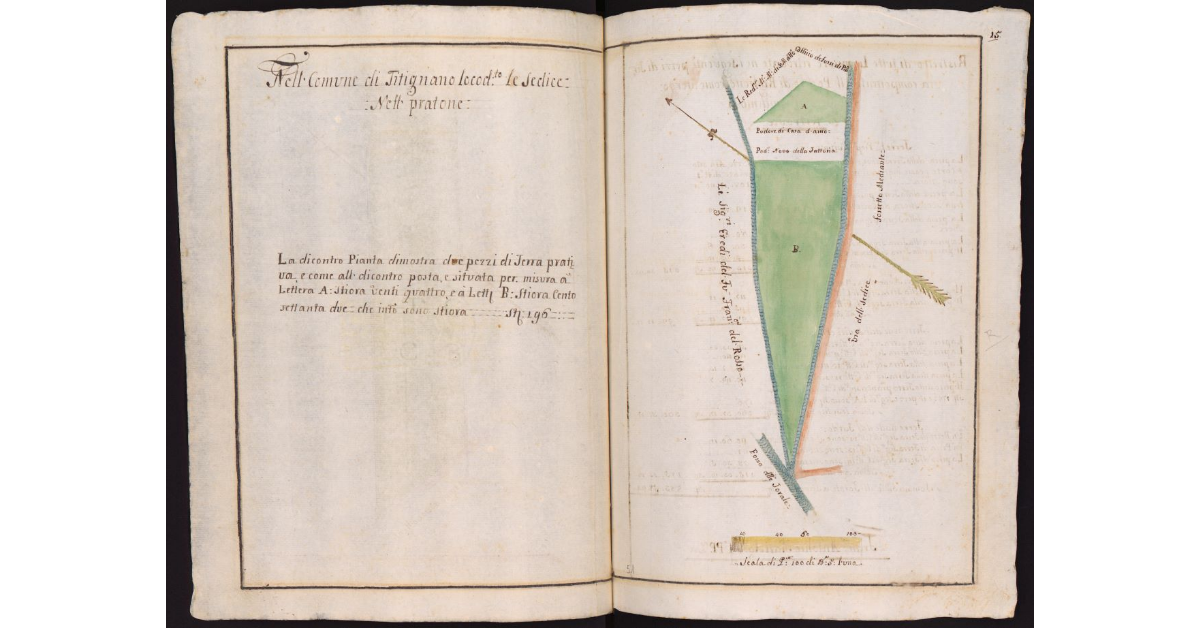 Nell Comune di Titignano locod.to Le Sedice:
:Nell pratone:
La dicontro Pianta dimostra due pezzi di Terra prati
va, e come all dicontro posta, e situata per misura à
Lettera A: Stiora venti quattro, e à Lett: B: Stiora Cento
settanta due: che intō sono stiora St: 196
15
Le Red:
A
Podere di Casa d'amō:
Pod: Novo della Fattoria
B.
Li Sig:ri Eredi del Fu Fran:co del Rosso
Fossetto Mediante:
Via dell sedice
Fosso della
10 20 50 100
Scala di P: 100 di B: P: Funa.